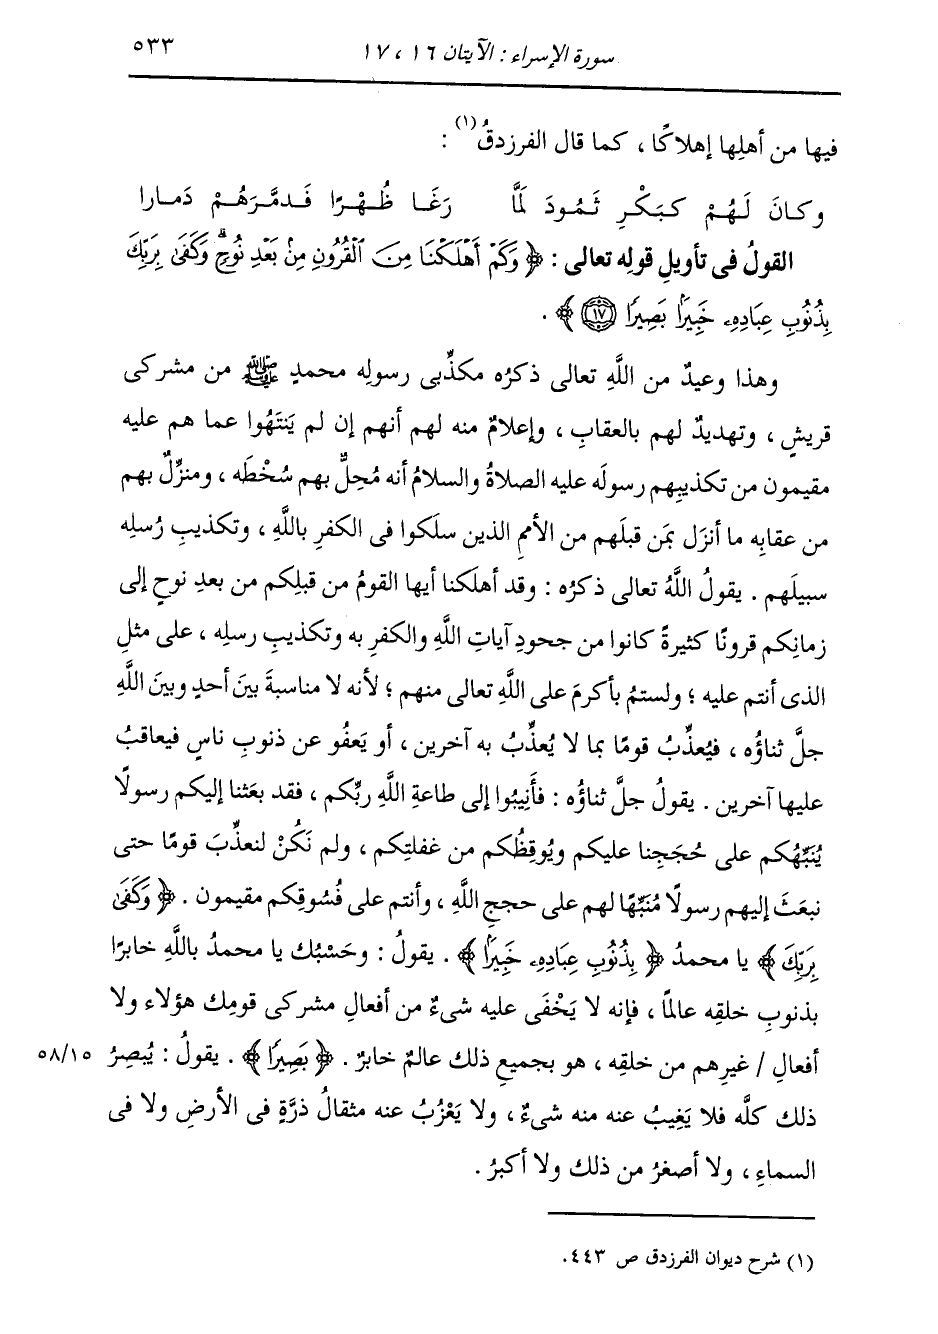 سورة الإسراء : الآيتان ١٦ ، ١٧ ٥٣٣
فيها من أهلِها إهلاكًا ، كما قال الفرزدقُ(١) :
وكانَ لَهُمْ كبَكْرِ ثَمُودَ لمَّا رَغَا ظُهْرًا فَدمَّرَهُمْ دَمارا
القولُ فى تأويلِ قولِه تعالى : ﴿ وَكَمْ أَهْلَكْنَا مِنَ ٱلْقُرُونِ مِنۢ بَعْدِ نُوحٍۗ وَكَفَىٰ بِرَبِّكَ
بِذُنُوبِ عِبَادِهِۦ خَبِيرًۢا بَصِيرًا ١٧ ﴾ .
وهذا وعيدٌ من اللَّهِ تعالى ذكرُه مكذِّبى رسولِه محمدٍ ﷺ من مشركى
قريشٍ ، وتهديدٌ لهم بالعقابِ ، وإعلامٌ منه لهم أنهم إن لم يَنتَهُوا عما هم عليه
مقيمون من تكذيبِهم رسولَه عليه الصلاةُ والسلامُ أنه مُحِلٌّ بهم سُخْطَه ، ومنزِّلٌ بهم
من عقابِه ما أنزَل بمَن قبلَهم من الأممِ الذين سلَكوا فى الكفرِ باللَّهِ ، وتكذيبِ رُسلِه
سبيلَهم . يقولُ اللَّهُ تعالى ذكرُه : وقد أهلَكنا أيها القومُ من قبلِكم من بعدِ نوحٍ إلى
زمانِكم قرونًا كثيرةً كانوا من جحودِ آياتِ اللَّهِ والكفرِ به وتكذيبِ رسلِه ، على مثلِ
الذى أنتم عليه ؛ ولستمُ بأكرمَ على اللَّهِ تعالى منهم ؛ لأنه لا مناسبةَ بينَ أحدٍ وبينَ اللَّهِ
جلَّ ثناؤُه ، فيُعذِّبُ قومًا بما لا يُعذِّبُ به آخرين ، أو يَعفُو عن ذنوبِ ناسٍ فيعاقبُ
عليها آخرين . يقولُ جلَّ ثناؤُه : فأَنِيبُوا إلى طاعةِ اللَّهِ ربِّكم ، فقد بعَثنا إليكم رسولًا
يُنَبِّهُكم على حُجَجِنا عليكم ويُوقِظُكم من غفلتِكم ، ولم نَكُنْ لنعذِّبَ قومًا حتى
نبعَثَ إليهم رسولًا مُنَبِّهًا لهم على حججِ اللَّهِ ، وأنتم على فُسُوقِكم مقيمون . ﴿ وَكَفَىٰ
بِرَبِّكَ ﴾ يا محمدُ ﴿ بِذُنُوبِ عِبَادِهِۦ خَبِيرًۢا ﴾ . يقولُ : وحَسْبُك يا محمدُ باللَّهِ خابرًا
بذنوبِ خلقِه عالمًا ، فإنه لا يَخْفَى عليه شىءٌ من أفعالِ مشركى قومِك هؤلاء ولا
أفعالِ / غيرِهم من خلقِه ، هو بجميعِ ذلك عالمٌ خابرٌ . ﴿ بَصِيرًا ﴾ . يقولُ : يُبصِرُ ٥٨/١٥
ذلك كلَّه فلا يَغِيبُ عنه منه شىءٌ ، ولا يَعْزُبُ عنه مثقالُ ذرَّةٍ فى الأرضِ ولا فى
السماءِ ، ولا أصغرُ من ذلك ولا أكبرُ .
(١) شرح ديوان الفرزدق ص ٤٤٣.